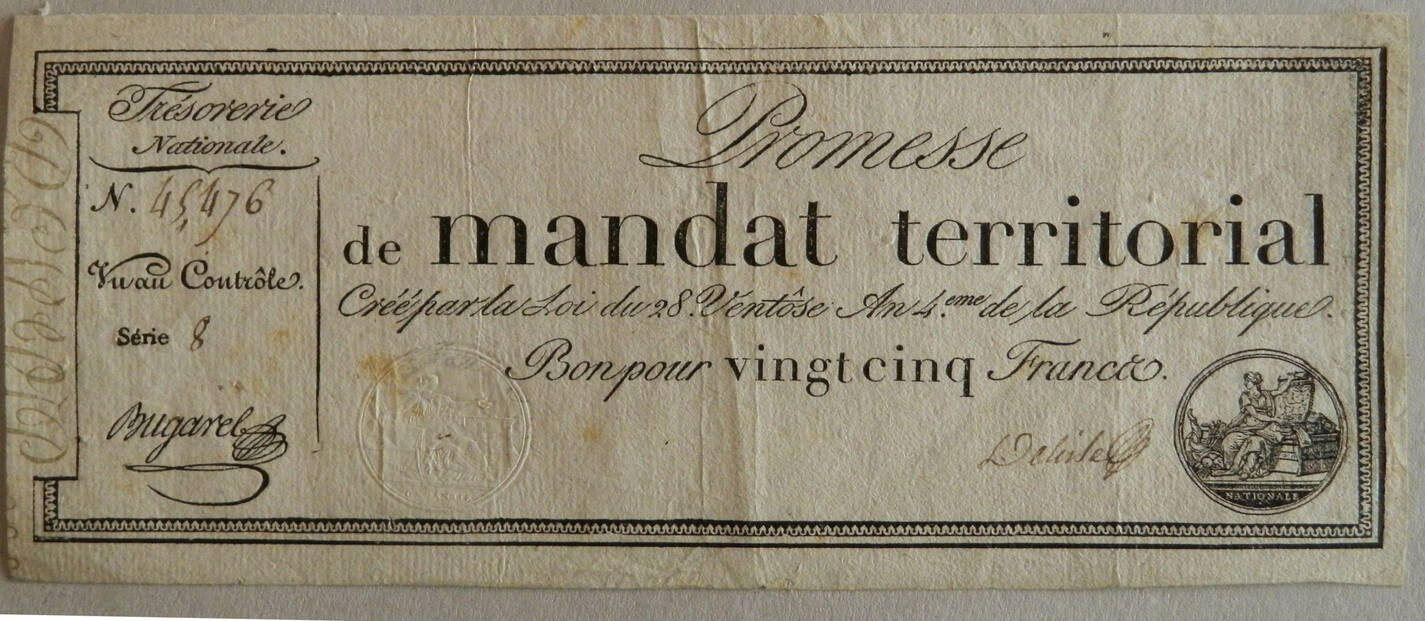 Trésorerie
Nationale.
N. 45,476
Vu au Contrôle.
Série 8
Bugarel
Promesse
de mandat territorial
Créé par la Loi du 28 Ventôse An 4.eme de la République.
Bon pour vingt cinq Francs.
NATIONALE